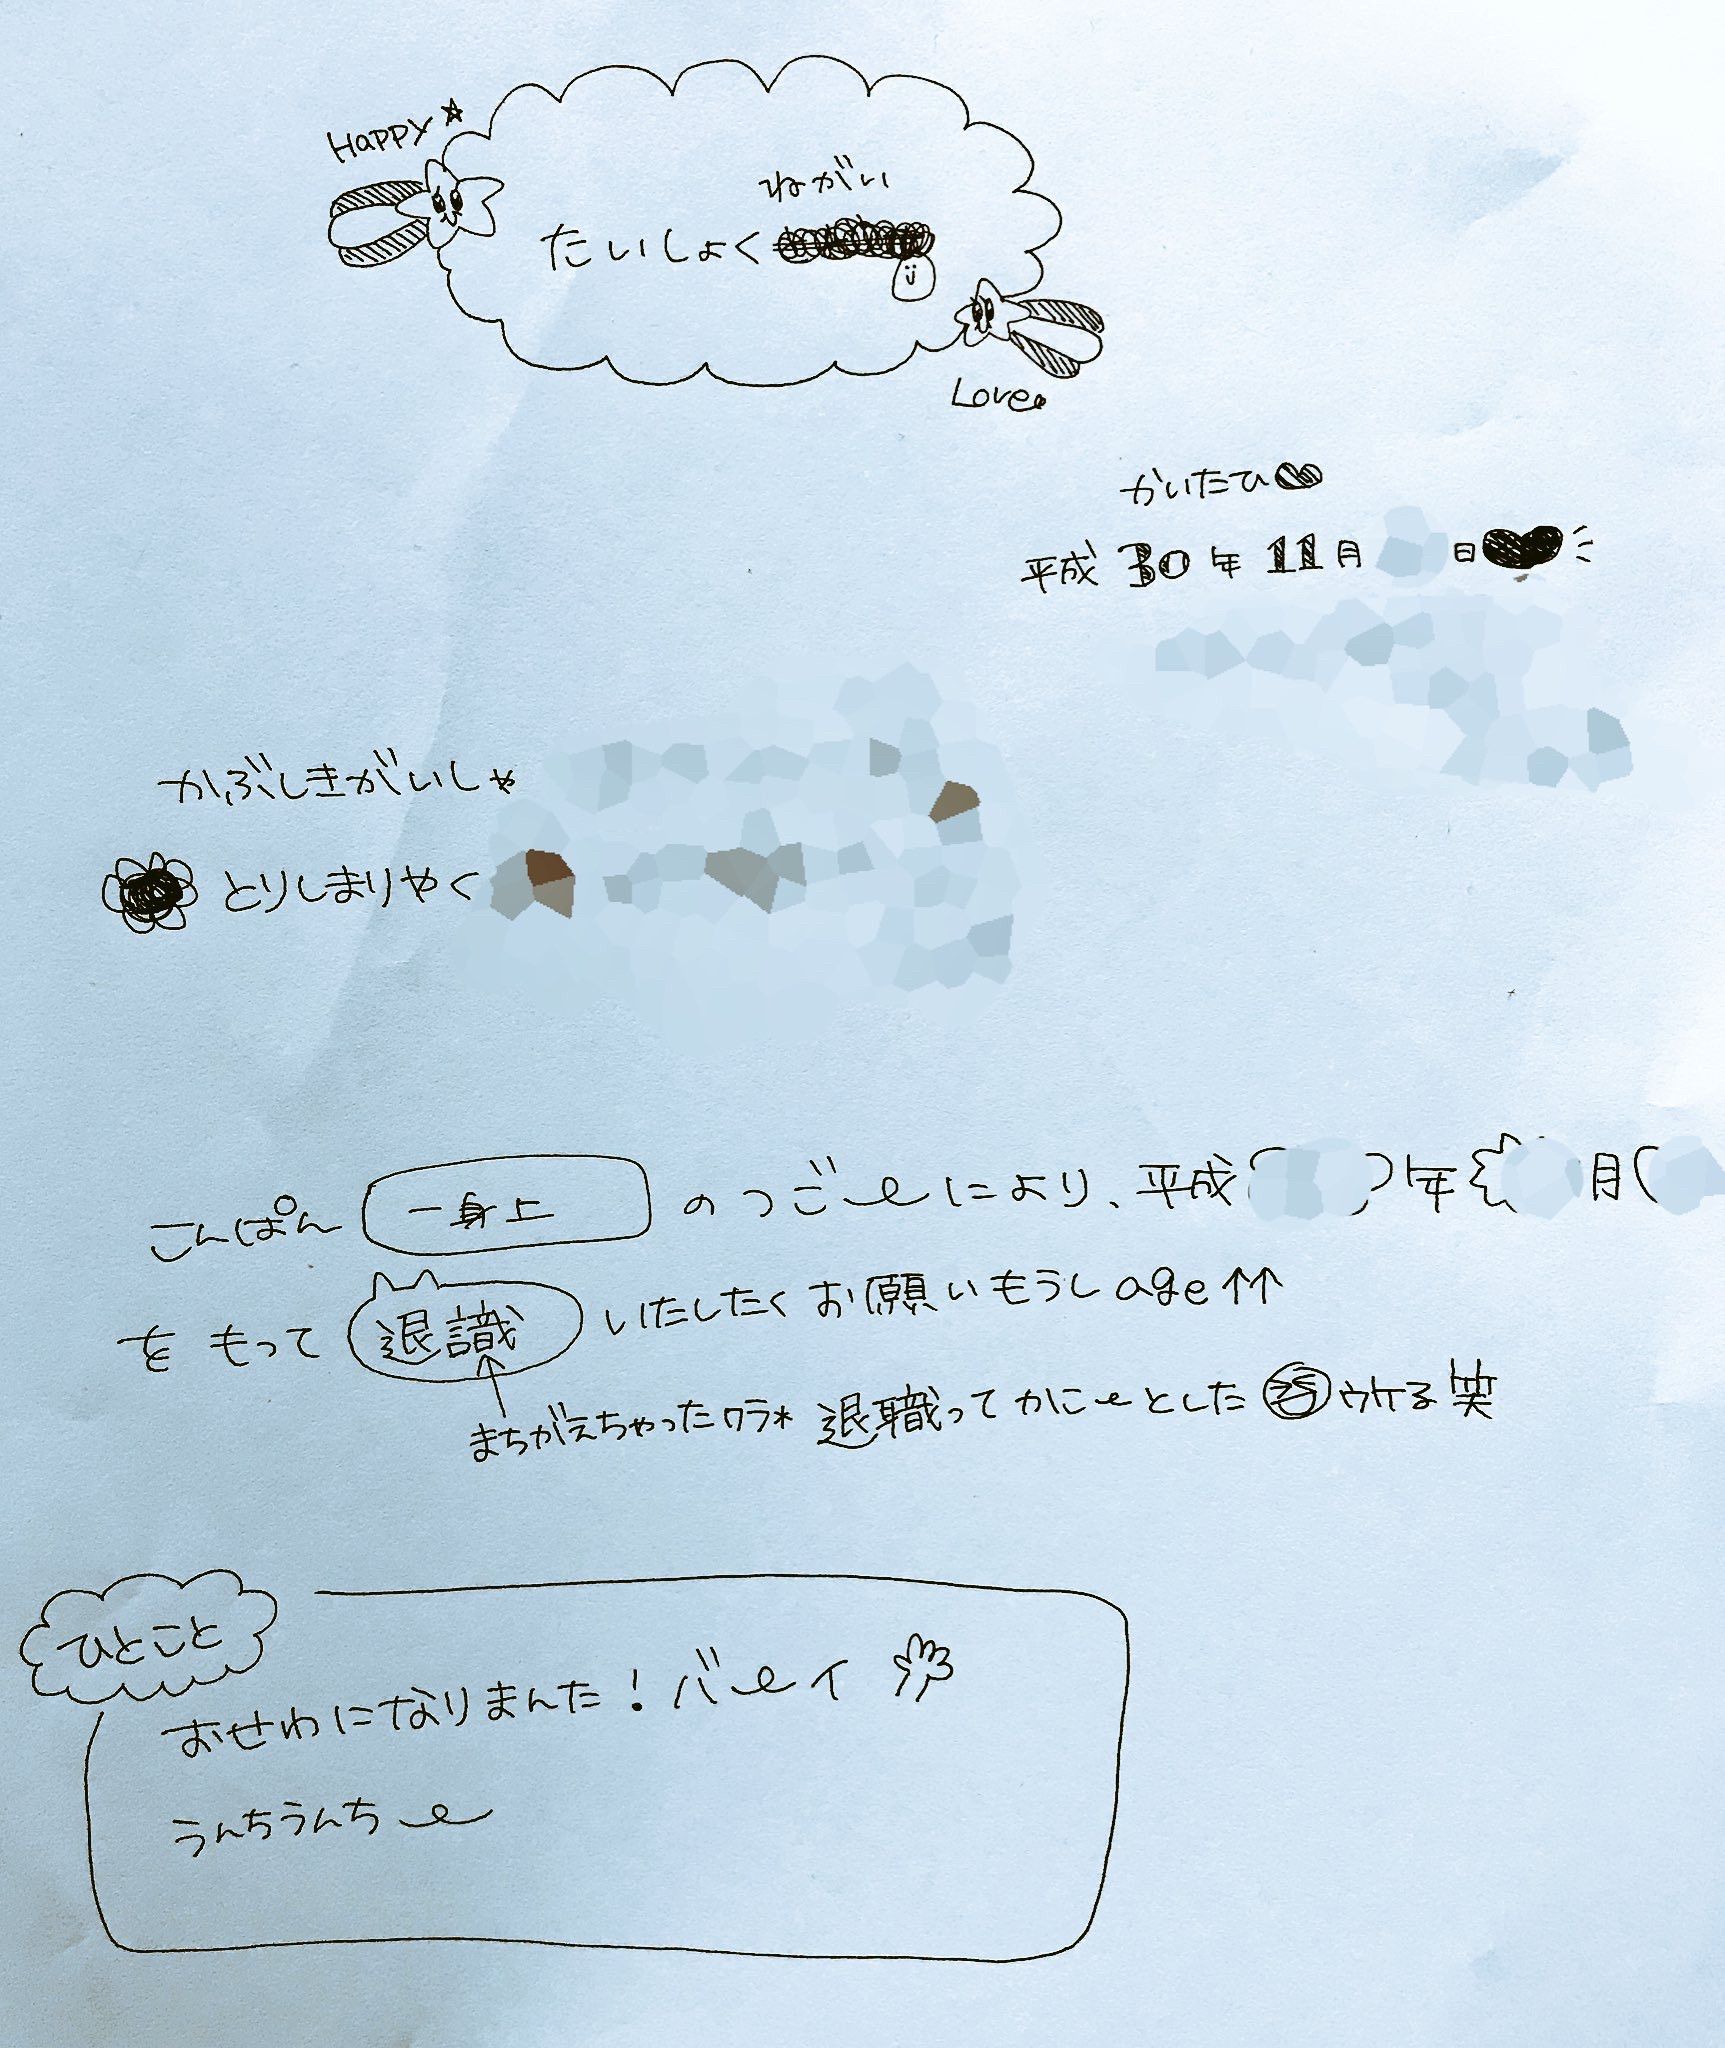 Happy☆
ねがい
たいしょく
Love
かいたひ♥
平成30年11月 日♥
かぶしきがいしゃ
とりしまりやく
こんぱん 一身上 のつごーにより、平成( )年{ 月(
をもって 退識 いたしたくお願いもうしage↑↑
まちがえちゃったワラ* 退職ってかにーとした ウケる笑
ひとこと
おせわになりまんた！バーイ
うんちうんちー